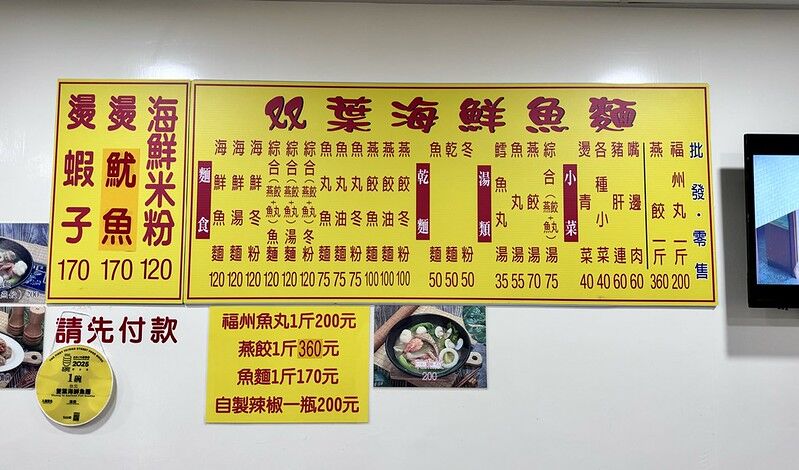 双葉海鮮魚麵
燙蝦子 170
燙魷魚 170
海鮮米粉 120
麵食
海鮮魚麵 120
海鮮湯麵 120
海鮮冬粉 120
綜合(燕餃+魚丸)魚麵 120
綜合(燕餃+魚丸)湯麵 120
綜合(燕餃+魚丸)冬粉 120
魚丸魚麵 75
魚丸油麵 75
魚丸冬粉 75
燕餃魚麵 100
燕餃油麵 100
燕餃冬粉 100
乾麵
魚麵 50
乾麵 50
冬粉 50
湯類
鱈魚丸湯 35
魚丸湯 55
燕餃湯 70
綜合(燕餃+魚丸)湯 75
小菜
燙青菜 40
各種小菜 40
豬肝連 60
嘴邊肉 60
燕餃一斤 360
福州丸一斤 200
批發·零售
請先付款
福州魚丸1斤200元
燕餃1斤360元
魚麵1斤170元
自製辣椒一瓶200元
2025
1碗
200
200